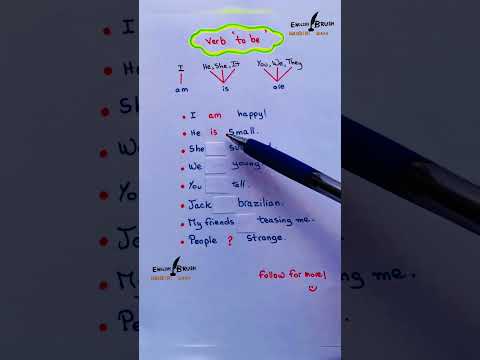 ENGLISH BRUSH
verb 'to be'
I He, She, It You, We, They
am is are
• I am happy!
• He is small.
• She
• We young
• You tall.
• Jack brazilian.
• My friends teasing me.
• People ? strange.
ENGLISH BRUSH
Follow for more!